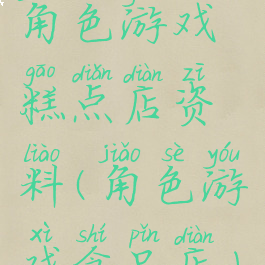 角色游戏
gāo diǎn diàn zī
糕点店资
liào jiǎo sè yóu
料(角色游
xì shí pǐn diàn
戏食品店)